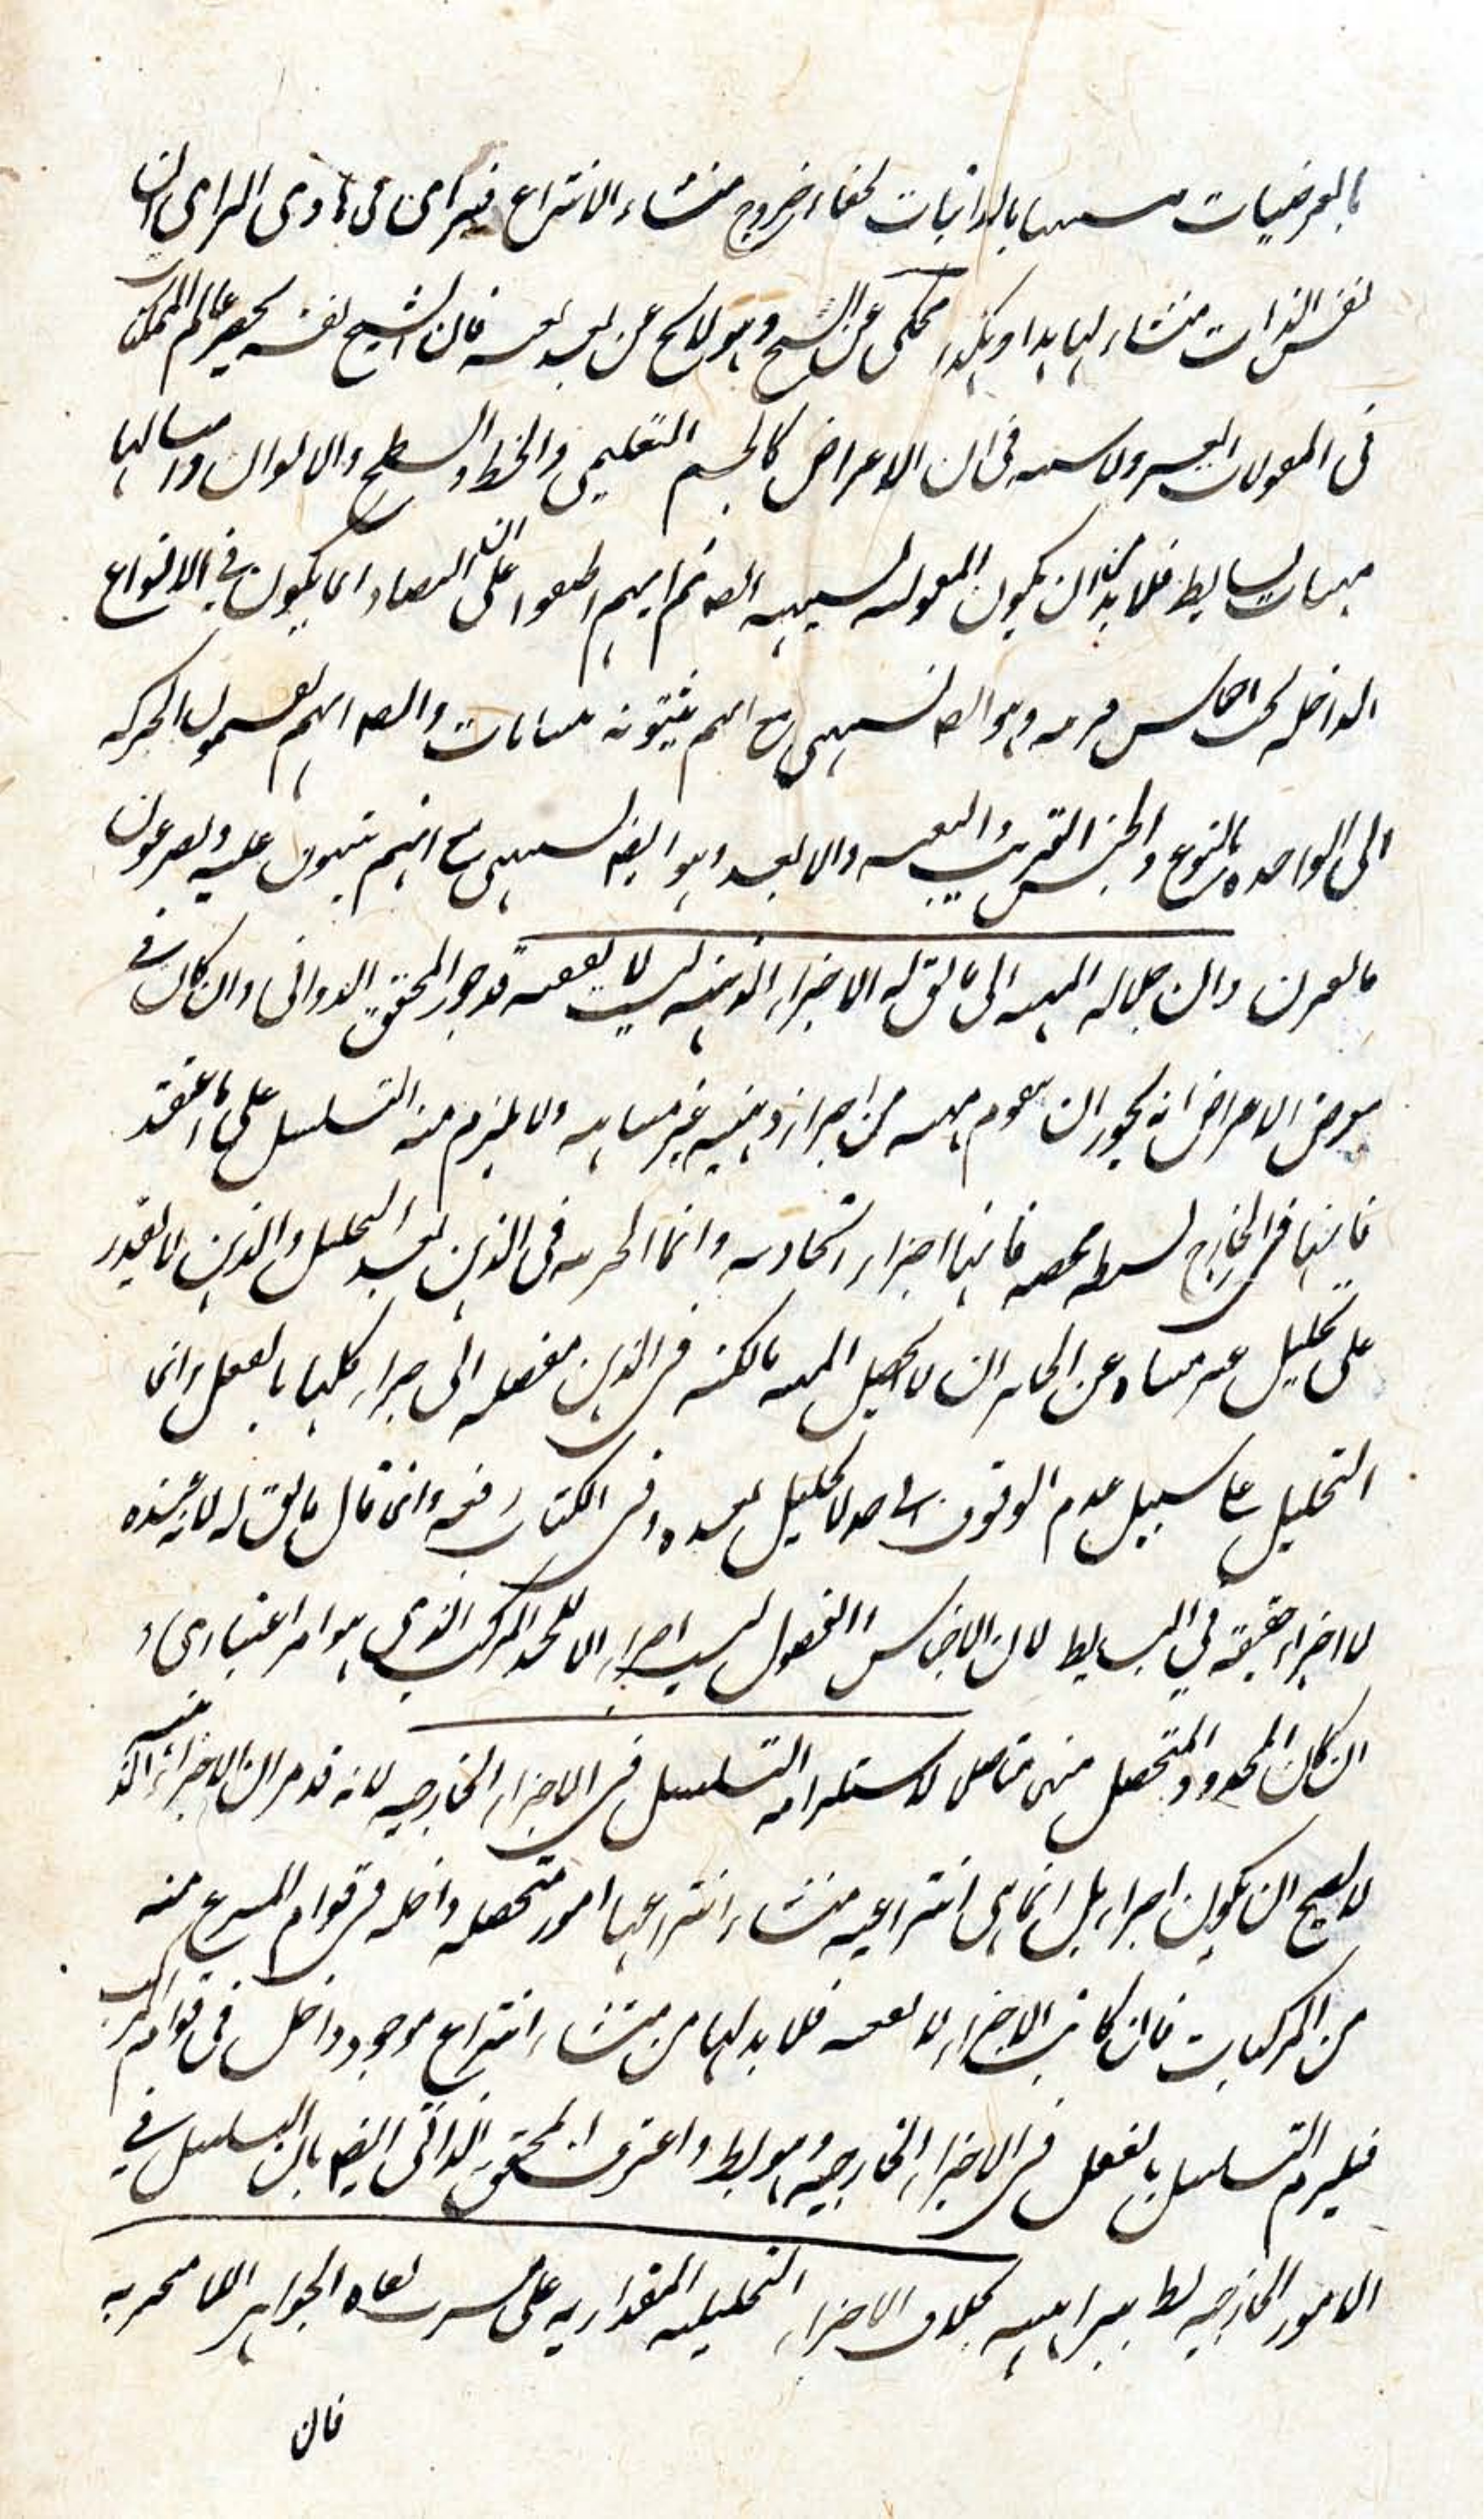 بالعرضيات مسببها بالذاتيات لخفاء خروج منشاء الانتزاع فيترااى فى بادى الراى ان
نفس الذات منشاء لها هذا وهكذا محكى عن الشيخ وهو لايح عن بعد فان الشيخ نفسه يحصر عالم الامكان
فى المقولات العشر ولا شبهه فى ان الاعراض كالجسم التعليمى والخط والسطح والالوان وامثالها
مهيات بسايط فلا بد من ان يكون المقوله لسبيهيه ايضا ثم انهم اطبقوا على ان التضاد انما يكون فى الانواع
الداخله تحت اجناس قريبه وهو ايضا لسبيهى مع انهم يثبتونه ببيانات وايضا انهم يقسمون الحركه
الى الواحده بالنوع والجنس القريب والبعيد والابعد وهو ايضا لسبيهى مع انهم يبنون عليه ويفرعون
بالفرق وان احاله المهيه الى ما يق له الاجزاء الذهنيه ليست لا يقفيه قد جوز المحقق الدوانى وان كان فى
معرض الاعراض انه يجوز ان يتقوم مهيه من اجزاء ذهنيه غير متناهيه ولا يلزم منه التسلسل على ما اعتقد
فانها فى الخارج بسيطه محضه فانها اجزاء اتحاديه وانما الجزئيه فى الذهن بعد التحليل والذهن لا يقدر
على تحليل غير متناه عن الجايز ان لا يحصل المهيه بالكنه فى الذهن مفصله الى اجزاء كلها بالفعل وانما
التحليل على سبيل عدم الوقوف الى حد لا تحليل بعده وفى الكتاب رفعه وانما قال ما يق له لانه عنده
لا اجزاء حقيقة فى البسايط لان الاجناس والفصول ليست اجزاء الا للحد المركب الذى هو امر اعتبارى و
ان كان المحدود المتحصل منهى متاصل لاستلزامه التسلسل فى الاجزاء الخارجيه لانه قد مر ان الاجزاء الذهنيه
لا يصح ان يكون اجزاء بل انما هى انتزاعيه منشاء انتزاعها امور متحصله داخله فى قوام المنتزع منه
من المركبات فان كانت الاجزاء لا يقفيه فلا بد لها من منشاء انتزاع موجود داخل فى قوام المركب
فيلزم التسلسل بالفعل فى الاجزاء الخارجيه وهو بط واعترف المحقق الدوانى ايضا بان التسلسل فى
الامور الخارجيه بط ببراهينه بخلاف الاجزاء التحليليه المقداريه على مسرب نفاة الجواهر اللا متجزيه
فان